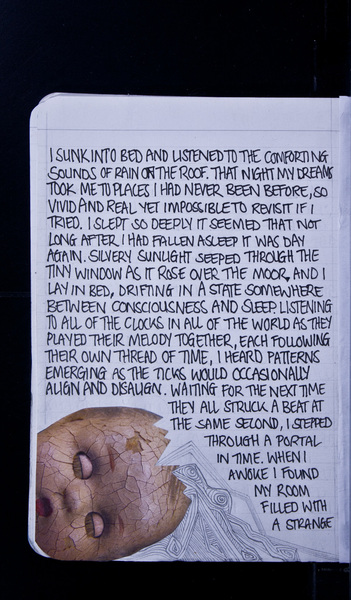 I SUNK INTO BED AND LISTENED TO THE COMFORTING
SOUNDS OF RAIN ON THE ROOF. THAT NIGHT MY DREAMS
TOOK ME TO PLACES I HAD NEVER BEEN BEFORE, SO
VIVID AND REAL YET IMPOSSIBLE TO REVISIT IF I
TRIED. I SLEPT SO DEEPLY IT SEEMED THAT NOT
LONG AFTER I HAD FALLEN ASLEEP IT WAS DAY
AGAIN. SILVERY SUNLIGHT SEEPED THROUGH THE
TINY WINDOW AS IT ROSE OVER THE MOOR, AND I
LAY IN BED, DRIFTING IN A STATE SOMEWHERE
BETWEEN CONSCIOUSNESS AND SLEEP. LISTENING
TO ALL OF THE CLOCKS IN ALL OF THE WORLD AS THEY
PLAYED THEIR MELODY TOGETHER, EACH FOLLOWING
THEIR OWN THREAD OF TIME, I HEARD PATTERNS
EMERGING AS THE TICKS WOULD OCCASIONALLY
ALIGN AND DISALIGN. WAITING FOR THE NEXT TIME
THEY ALL STRUCK A BEAT AT
THE SAME SECOND, I STEPPED
THROUGH A PORTAL
IN TIME. WHEN I
AWOKE I FOUND
MY ROOM
FILLED WITH
A STRANGE